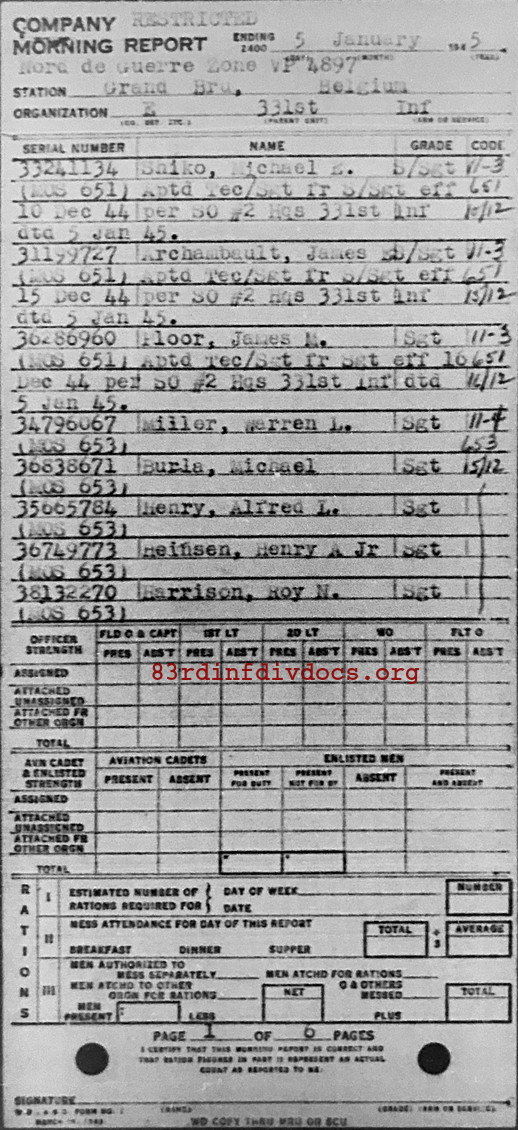 COMPANY RESTRICTED
MORNING REPORT ENDING 2400 5 January 1945
(DAY) (MONTH) (YEAR)
Nord de Guerre Zone VP 4897
STATION Grand Bru, Belgium
ORGANIZATION E 331st Inf
(CO. DET. ETC.) (PARENT UNIT) (ARM OR SERVICE)
SERIAL NUMBER NAME GRADE CODE
33241134 Shiko, Michael E. S/Sgt 11-3
(MOS 651) Aptd Tec/Sgt fr S/Sgt eff 651
10 Dec 44 per SO #2 Hqs 331st Inf 10/12
dtd 5 Jan 45.
31199727 Archambault, James E S/Sgt 11-3
(MOS 651) Aptd Tec/Sgt fr S/Sgt eff 651
15 Dec 44 per SO #2 Hqs 331st Inf 15/12
dtd 5 Jan 45.
36286960 Floor, James M. Sgt 11-3
(MOS 651) Aptd Tec/Sgt fr Sgt eff 16 651
Dec 44 per SO #2 Hqs 331st Inf dtd 16/12
5 Jan 45.
34796067 Miller, Warren L. Sgt 11-4
(MOS 653) 653
36838671 Burla, Michael Sgt 15/12
(MOS 653)
35665784 Henry, Alfred L. Sgt
(MOS 653)
36749773 Heinsen, Henry A Jr Sgt
(MOS 653)
38132270 Harrison, Roy N. Sgt
(MOS 653)
OFFICER STRENGTH FLD O & CAPT 1ST LT 2D LT WO FLT O
PRES ABS'T PRES ABS'T PRES ABS'T PRES ABS'T PRES ABS'T
ASSIGNED
83rdinfdivdocs.org
ATTACHED UNASSIGNED
ATTACHED FR OTHER ORGN
TOTAL
AVN CADET & ENLISTED STRENGTH AVIATION CADETS ENLISTED MEN
PRESENT ABSENT PRESENT FOR DUTY PRESENT NOT FOR DY ABSENT PRESENT AND ABSENT
ASSIGNED
ATTACHED UNASSIGNED
ATTACHED FR OTHER ORGN
TOTAL
RATIONS
I ESTIMATED NUMBER OF RATIONS REQUIRED FOR { DAY OF WEEK NUMBER
DATE
II MESS ATTENDANCE FOR DAY OF THIS REPORT TOTAL ÷ 3 AVERAGE
BREAKFAST DINNER SUPPER
III MEN AUTHORIZED TO MESS SEPARATELY MEN ATCHD FOR RATIONS
MEN ATCHD TO OTHER ORGN FOR RATIONS NET O & OTHERS MESSED TOTAL
MEN PRESENT LESS PLUS
PAGE 1 OF 6 PAGES
I CERTIFY THAT THIS MORNING REPORT IS CORRECT AND
THAT RATION FIGURES IN PART III REPRESENT AN ACTUAL
COUNT AS REPORTED TO ME.
SIGNATURE
(NAME) (GRADE) (ARM OR SERVICE)
W.D., A.G.O. FORM NO. 1
WD COPY THRU MRU OR SCU